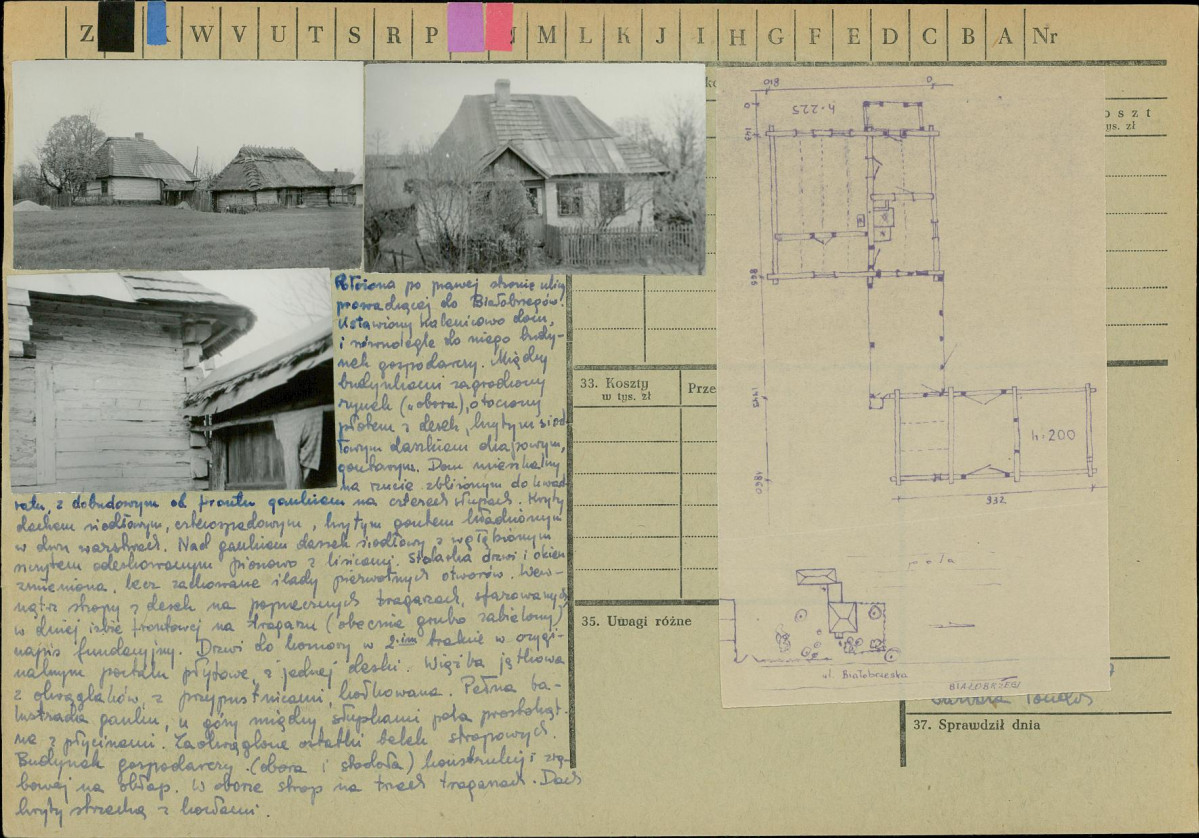 Z W V U T S R P N M L K J I H G F E D C B A Nr
oszt
ys. zł
Położona po prawej stronie ulicy
prowadzącej do Białobrzegów.
Ustawiony kalenicowo dom,
i równolegle do niego budy-
nek gospodarczy. Między
budynkami zagrodzony
rynek ("obora"), otoczony
płotem z desek, krytym siod-
łowym daszkiem okapowym,
gontowym. Dom mieszkalny
na rzucie zbliżonym do kwad-
ratu, z dobudowym od frontu gankiem na czterech słupach. Kryty
dachem siodłowym, czterospadowym, krytym gontem kładzionym
w dwu warstwach. Nad gankiem daszek siodłowy z wgłębionym
szczytem odeskowanym pionowo z lisicami. Stolarka drzwi i okien
zmieniona, lecz zachowane ślady pierwotnych otworów. Wew-
nątrz stropy z desek na poprzecznych tragarzach, sfazowanych
w dużej izbie frontowej na tragarzu (obecnie grubo zabielony)
napis fundacyjny. Drzwi do komory w 2-im trakcie w orygi-
nalnym portalu płytowe, z jednej deski. Więźba jętkowa
z okrąglaków, z przypustnicami, kołkowana. Pełna ba-
lustrada ganku, u góry między słupkami pola prostokąt-
ne z płycinami. Zaokrąglone ostatki belek stropowych.
Budynek gospodarczy (obora i stodoła) konstrukcji zrę-
bowej na obłap. W oborze strop na trzech tragarzach. Dach
kryty strzechą z kozłami.
33. Koszty
w tys. zł
Prze
35. Uwagi różne
37. Sprawdził dnia
810
0
0
143
h=225
866
1445
1860
h=200
932
pola
ul. Białobrzeska
BIAŁOBRZEGI